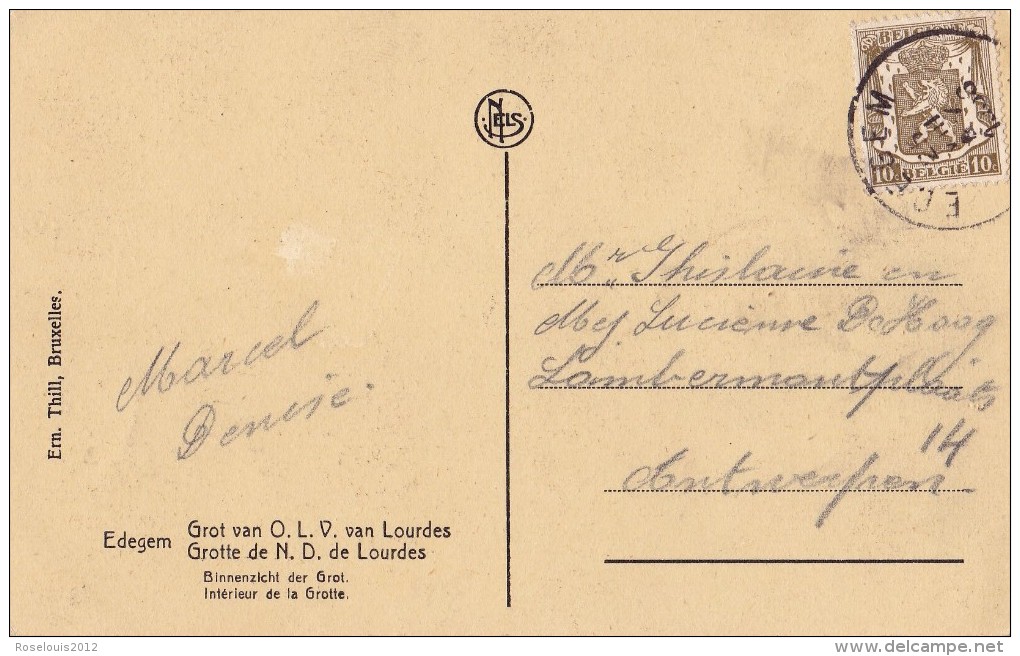 BELGIQUE
10c BELGIË 10c
EDEGEM
NELS
Ern. Thill, Bruxelles.
Marcel
Denise.
Mr Ghislaine en
Mej Lucienne De Hoog
Lambermontplaats
14
Antwerpen
Edegem
Grot van O. L. V. van Lourdes
Grotte de N. D. de Lourdes
Binnenzicht der Grot.
Intérieur de la Grotte.
Roselouis2012
www.delcampe.net